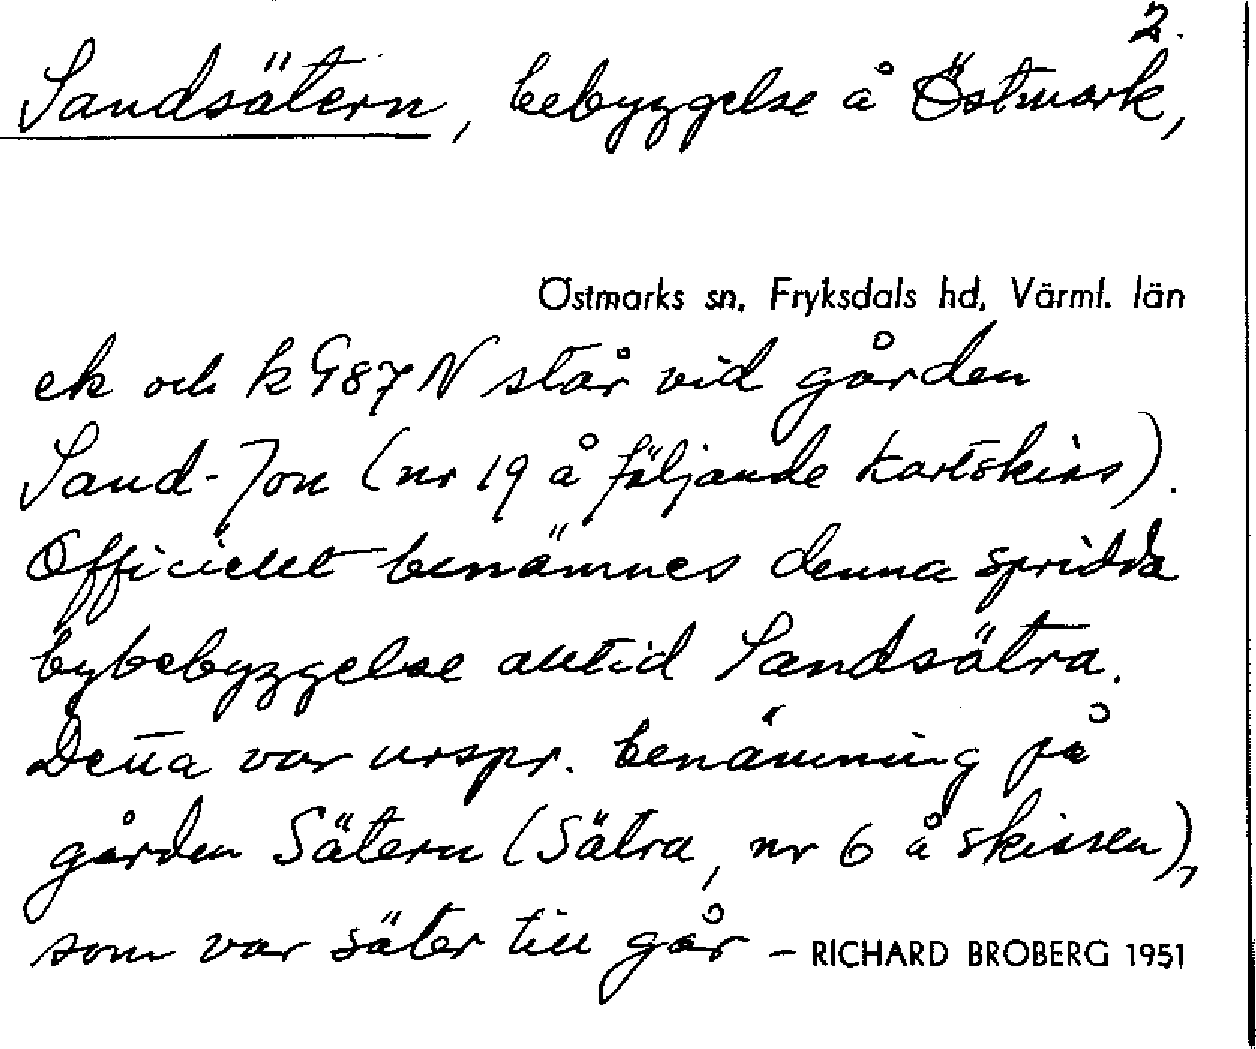 2.
Sandsätern, bebyggelse å Östmark,
Östmarks sn, Fryksdals hd, Värml. län
ek och k G87N står vid gården
Sand-Jon (nr 19 å följande kartskiss).
Officiellt benämnes denna spridda
bybebyggelse alltid Sandsätra.
Detta var urspr. benämning på
gården Sätern (Sätra, nr 6 å skissen),
som var säter till går-
RICHARD BROBERG 1951